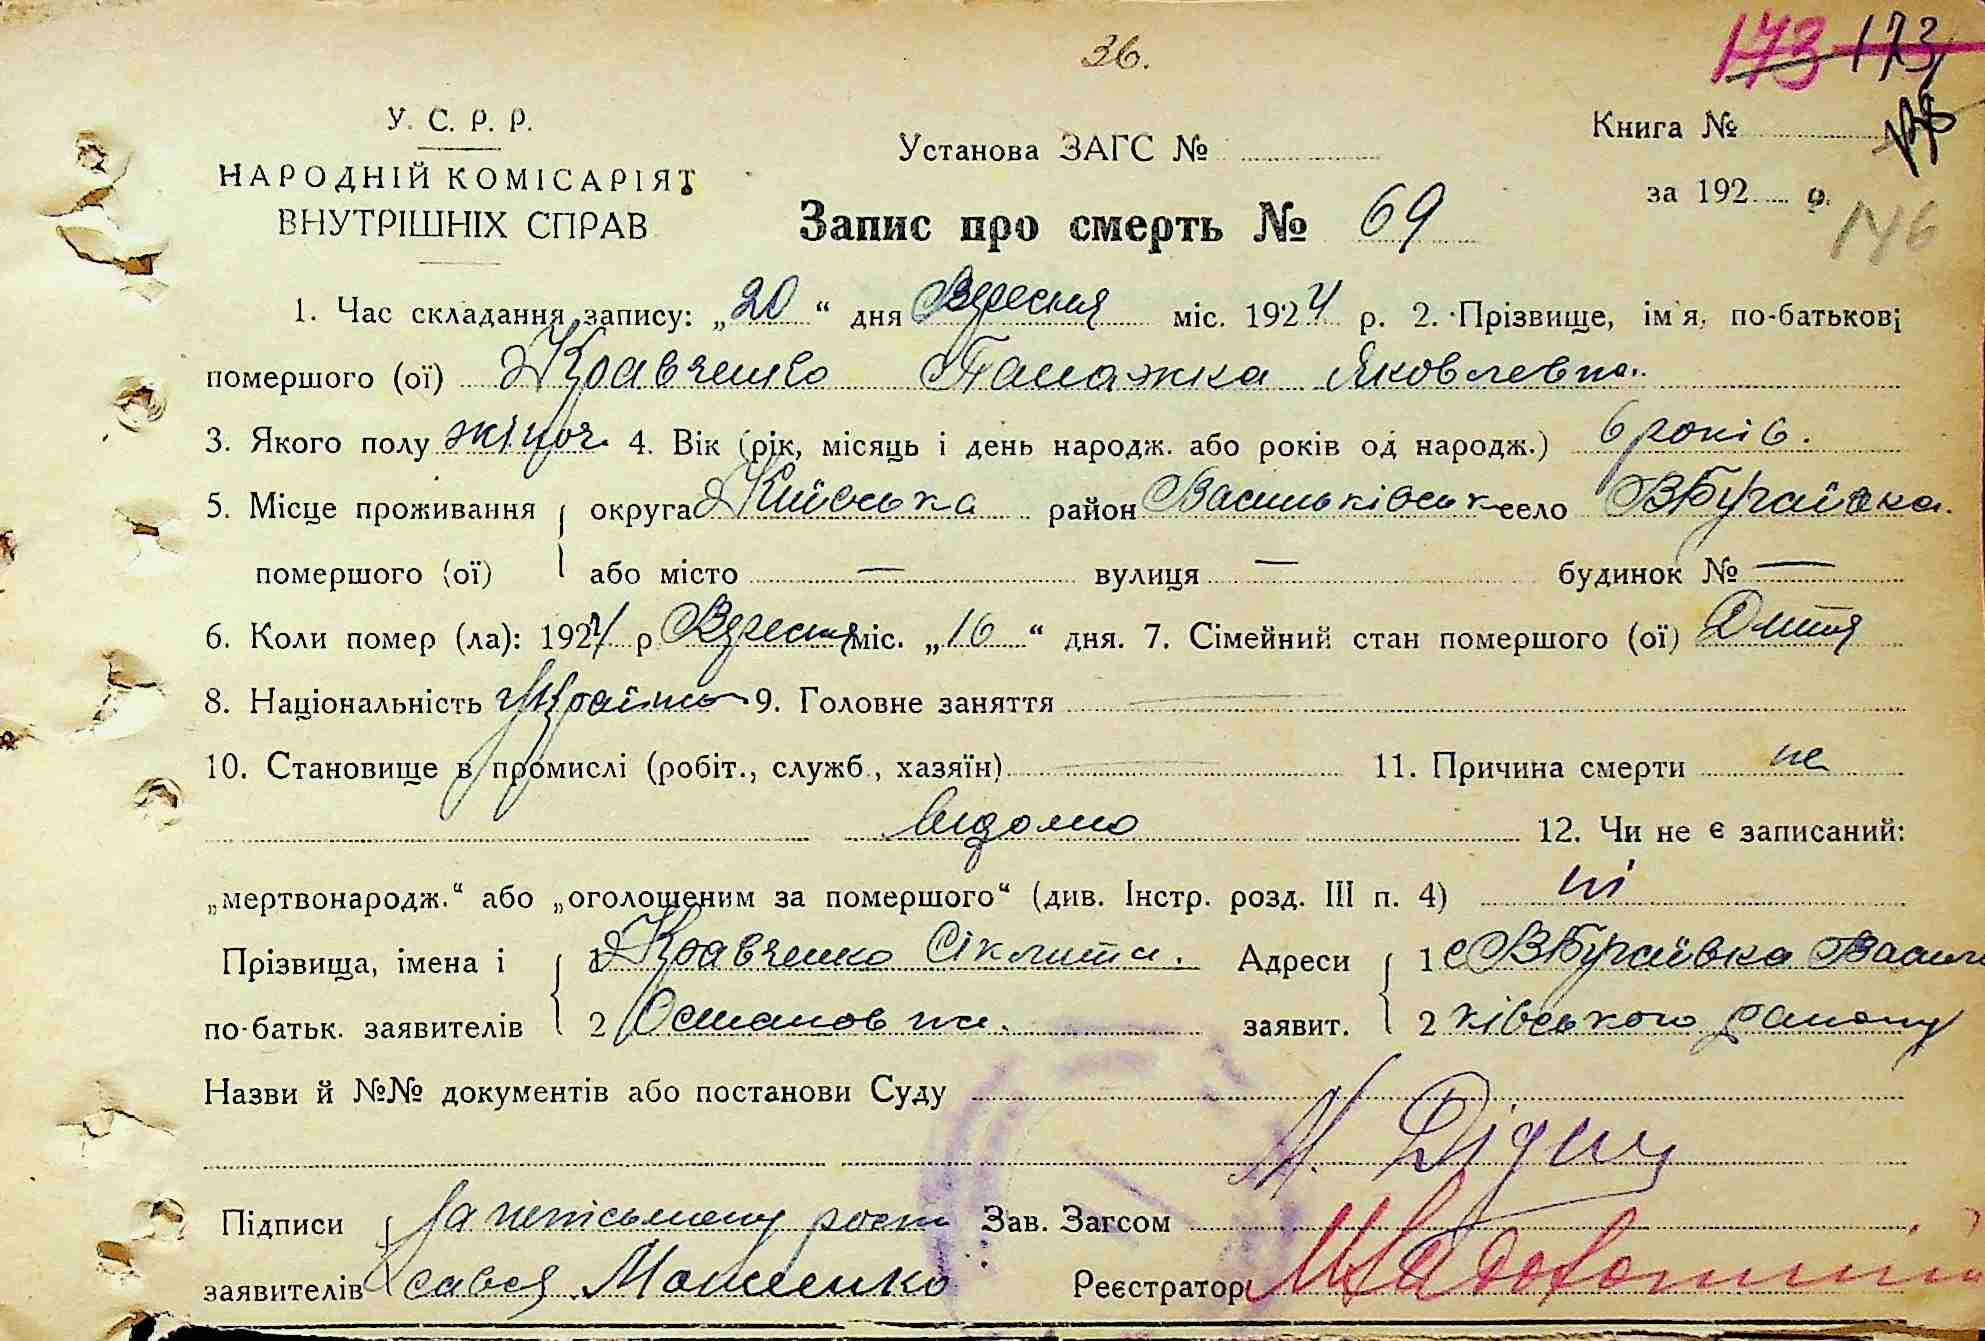 36.
173 173
У. С. Р. Р.
НАРОДНІЙ КОМІСАРІЯТ
ВНУТРІШНІХ СПРАВ
Установа ЗАГС №
Книга №
за 192 р.
146
Запис про смерть № 69
1. Час складання запису: „20“ дня Вересня міс. 1924 р. 2. Прізвище, ім'я, по-батькові
помершого (ої) Кравченко Палажка Яковлевна.
3. Якого полу жіноч. 4. Вік (рік, місяць і день народж. або років од народж.) 6 років.
5. Місце проживання округа Київська район Васильківськ село ВБугаївка.
помершого (ої) або місто — вулиця — будинок № —
6. Коли помер (ла): 1924 р Вересня міс. „16“ дня. 7. Сімейний стан помершого (ої) Дитя
8. Національність 9. Головне заняття —
10. Становище в промислі (робіт., служб., хазяїн) — 11. Причина смерти не
відомо 12. Чи не є записаний:
„мертвонародж.“ або „оголошеним за помершого“ (див. Інстр. розд. III п. 4) ні
Прізвища, імена і 1 Кравченко Сіклита. Адреси 1 с ВБугаївка Василь
по-батьк. заявителів 2 Остаповна. заявит. 2 ківського району
Назви й №№ документів або постанови Суду
М. Дідич
Підписи За неписьмену розп Зав. Загсом
заявителів Реєстратор